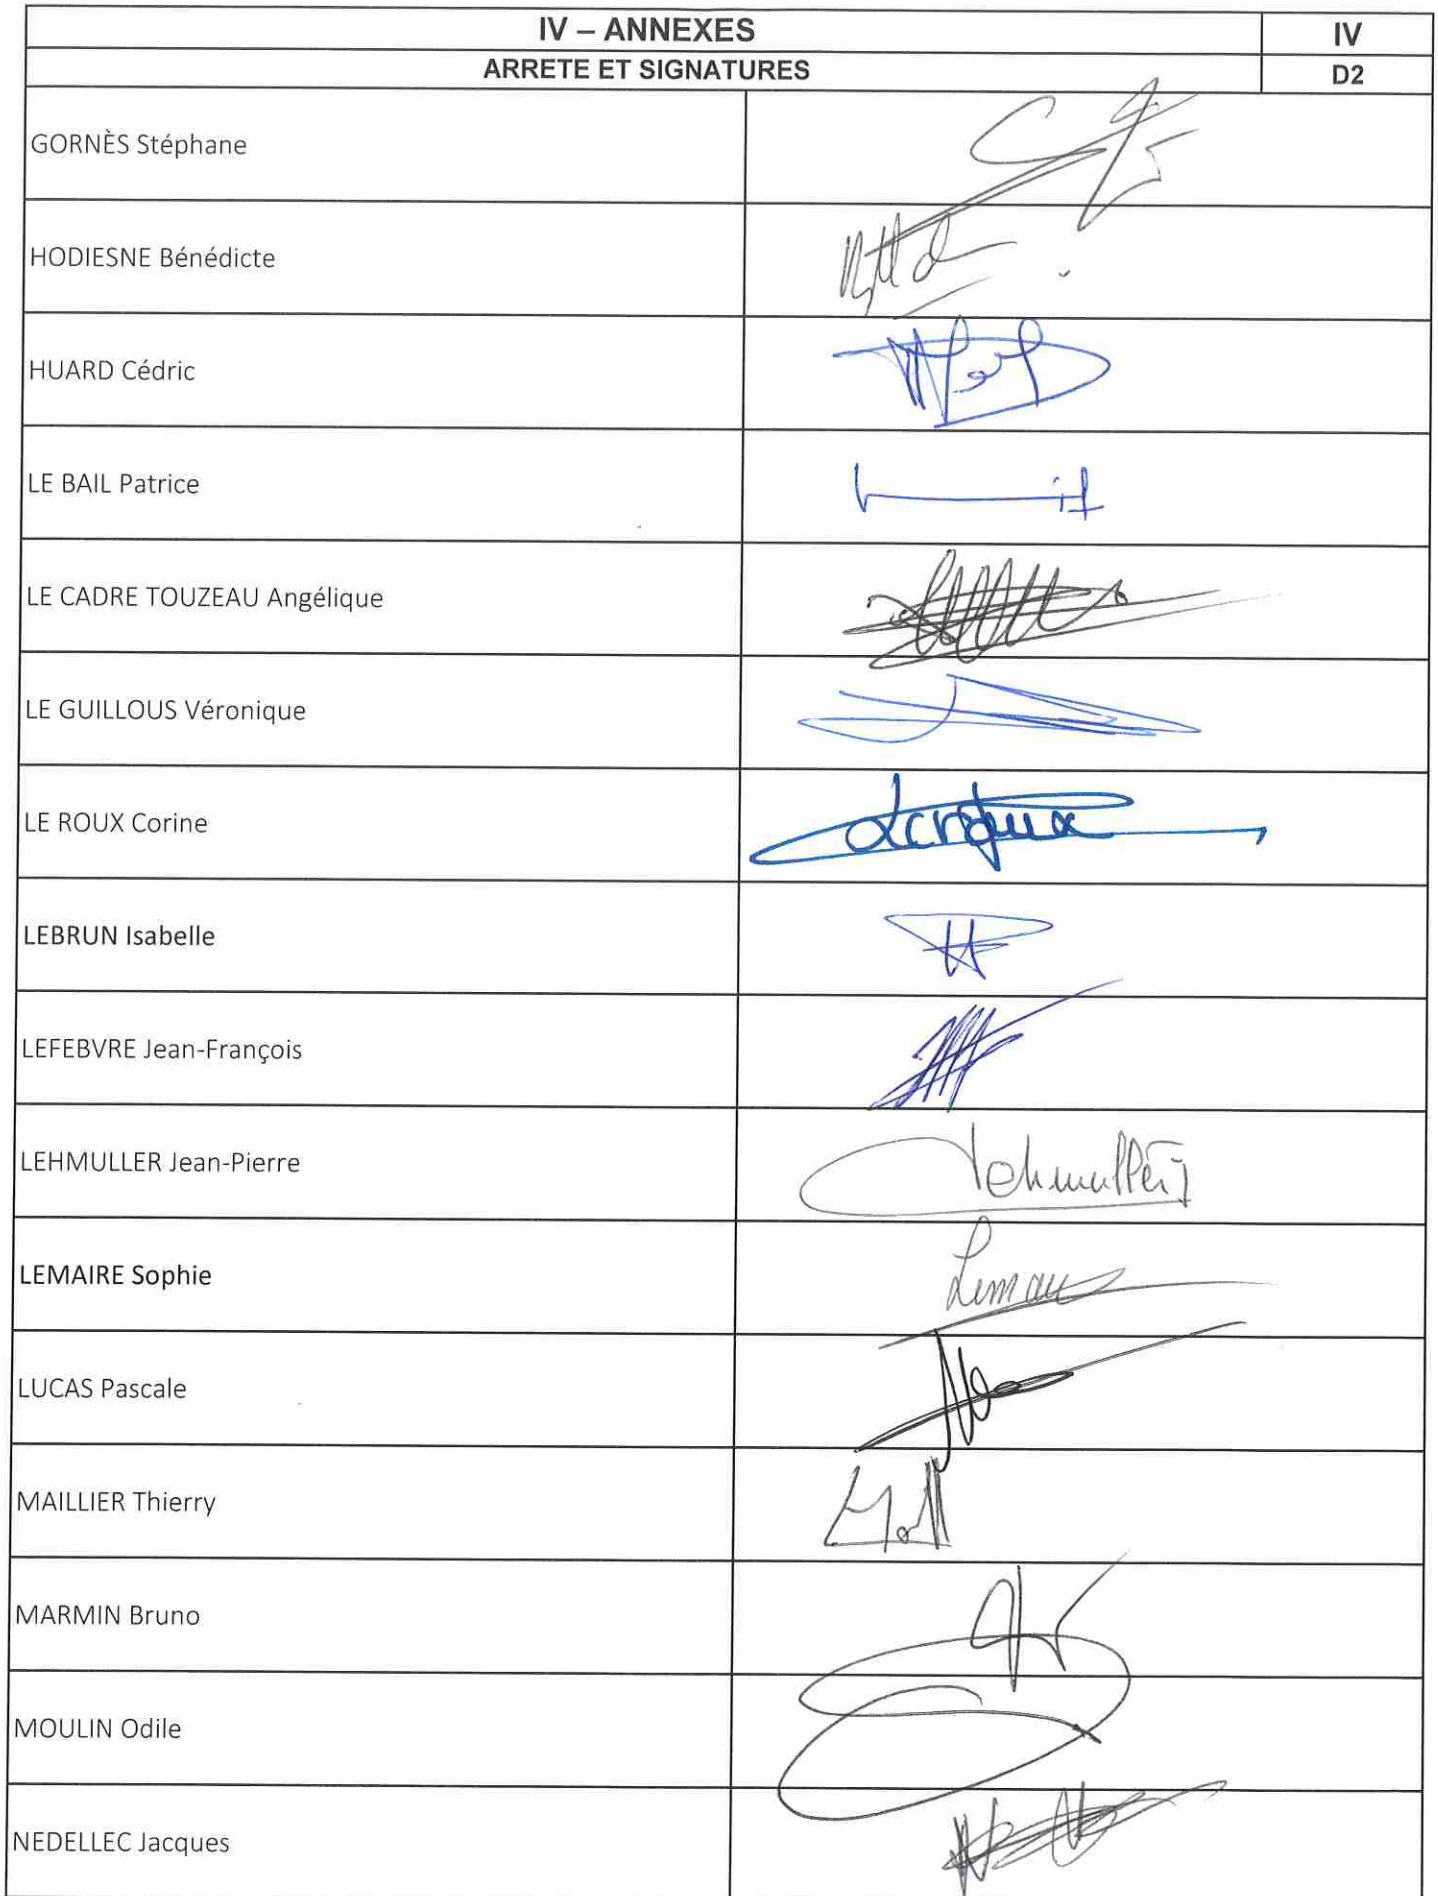 IV – ANNEXES IV
ARRETE ET SIGNATURES D2
GORNÈS Stéphane
HODIESNE Bénédicte
HUARD Cédric
LE BAIL Patrice
LE CADRE TOUZEAU Angélique
LE GUILLOUS Véronique
LE ROUX Corine
LEBRUN Isabelle
LEFEBVRE Jean-François
LEHMULLER Jean-Pierre
LEMAIRE Sophie
LUCAS Pascale
MAILLIER Thierry
MARMIN Bruno
MOULIN Odile
NEDELLEC Jacques